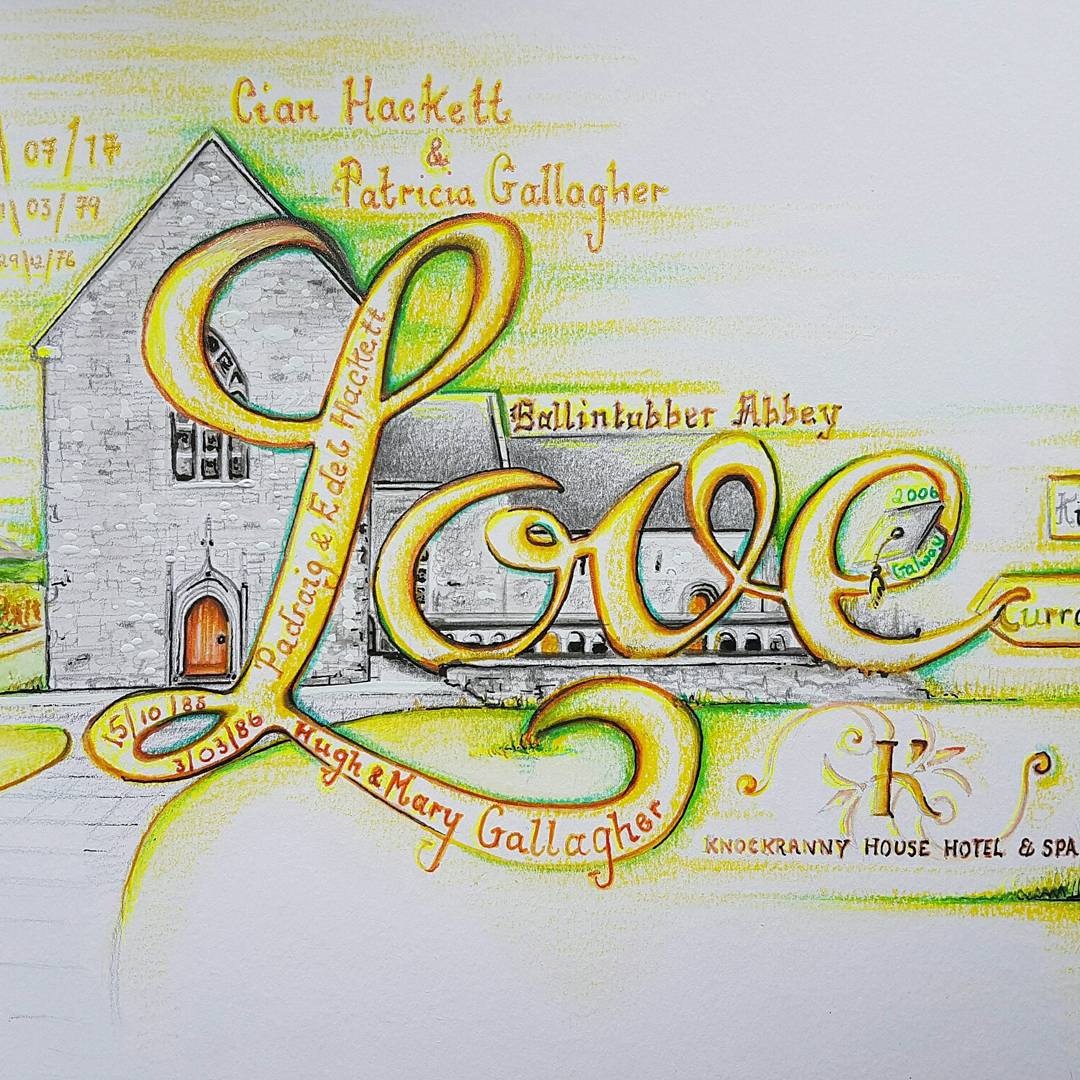 Cian Hackett
&
Patricia Gallagher
07/17
03/79
29\12/76
Padraig & Edel Hackett
Love
Ballintubber Abbey
2006
Galway
15/10/88
3/03/86
Hugh & Mary Gallagher
K
KNOCKRANNY HOUSE HOTEL & SPA